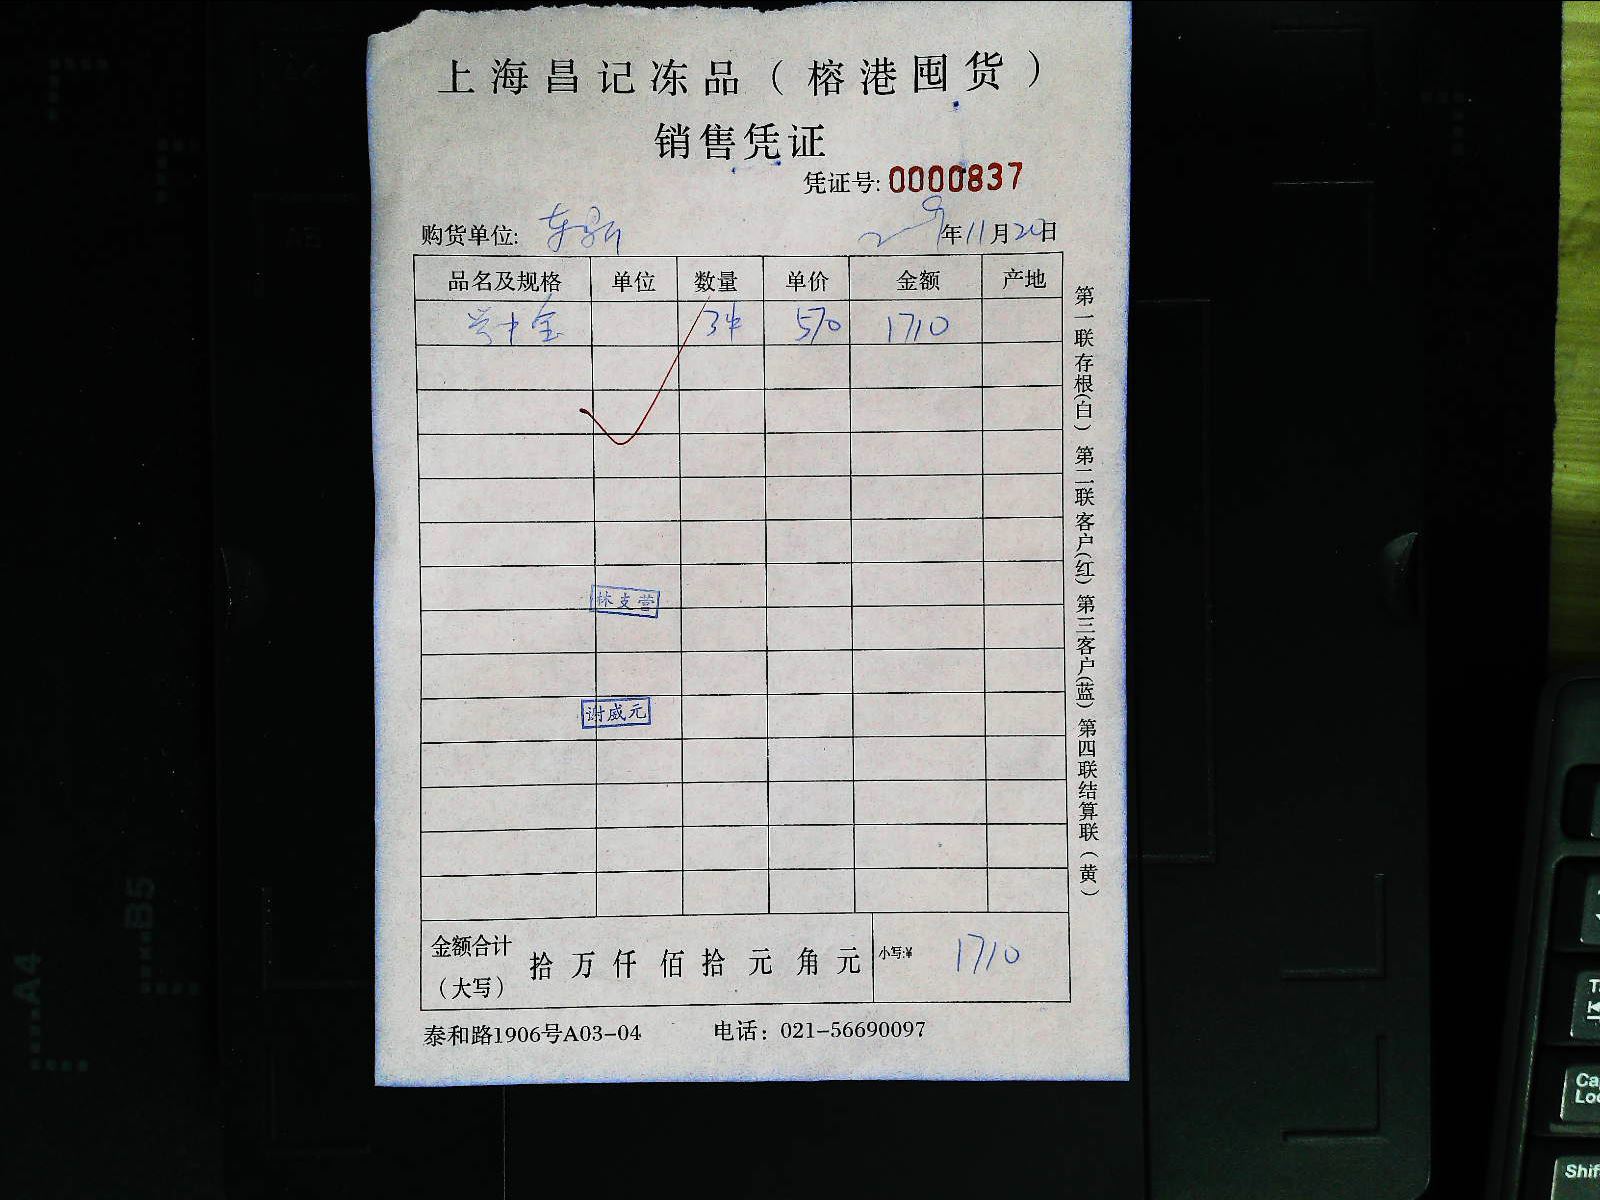 上海昌记冻品（榕港囤货）
销售凭证
凭证号: 0000837
购货单位: 年11月20日
品名及规格 单位 数量 单价 金额 产地
3件 570 1710
林支营
谢威元
金额合计（大写） 拾 万 仟 佰 拾 元 角 元 小写:¥ 1710
泰和路1906号A03-04 电话：021-56690097
第一联存根(白) 第二联客户(红) 第三客户(蓝) 第四联结算联（黄）
A4
B5
A5
Shif